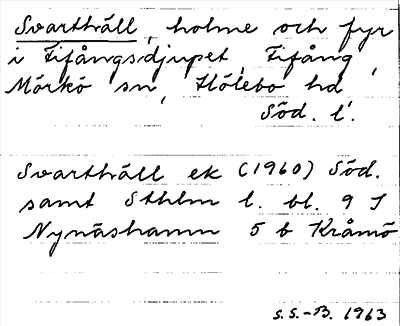 Svarthäll, holme och fyr
i Fifångsdjupet, Fifång,
Mörkö sn, Hölebo hd,
Söd. l.
Svarthäll ek (1960) Söd.
samt Sthlm l. bl. 9 I
Nynäshamn 5 b Kråmö
S.S.-B. 1963